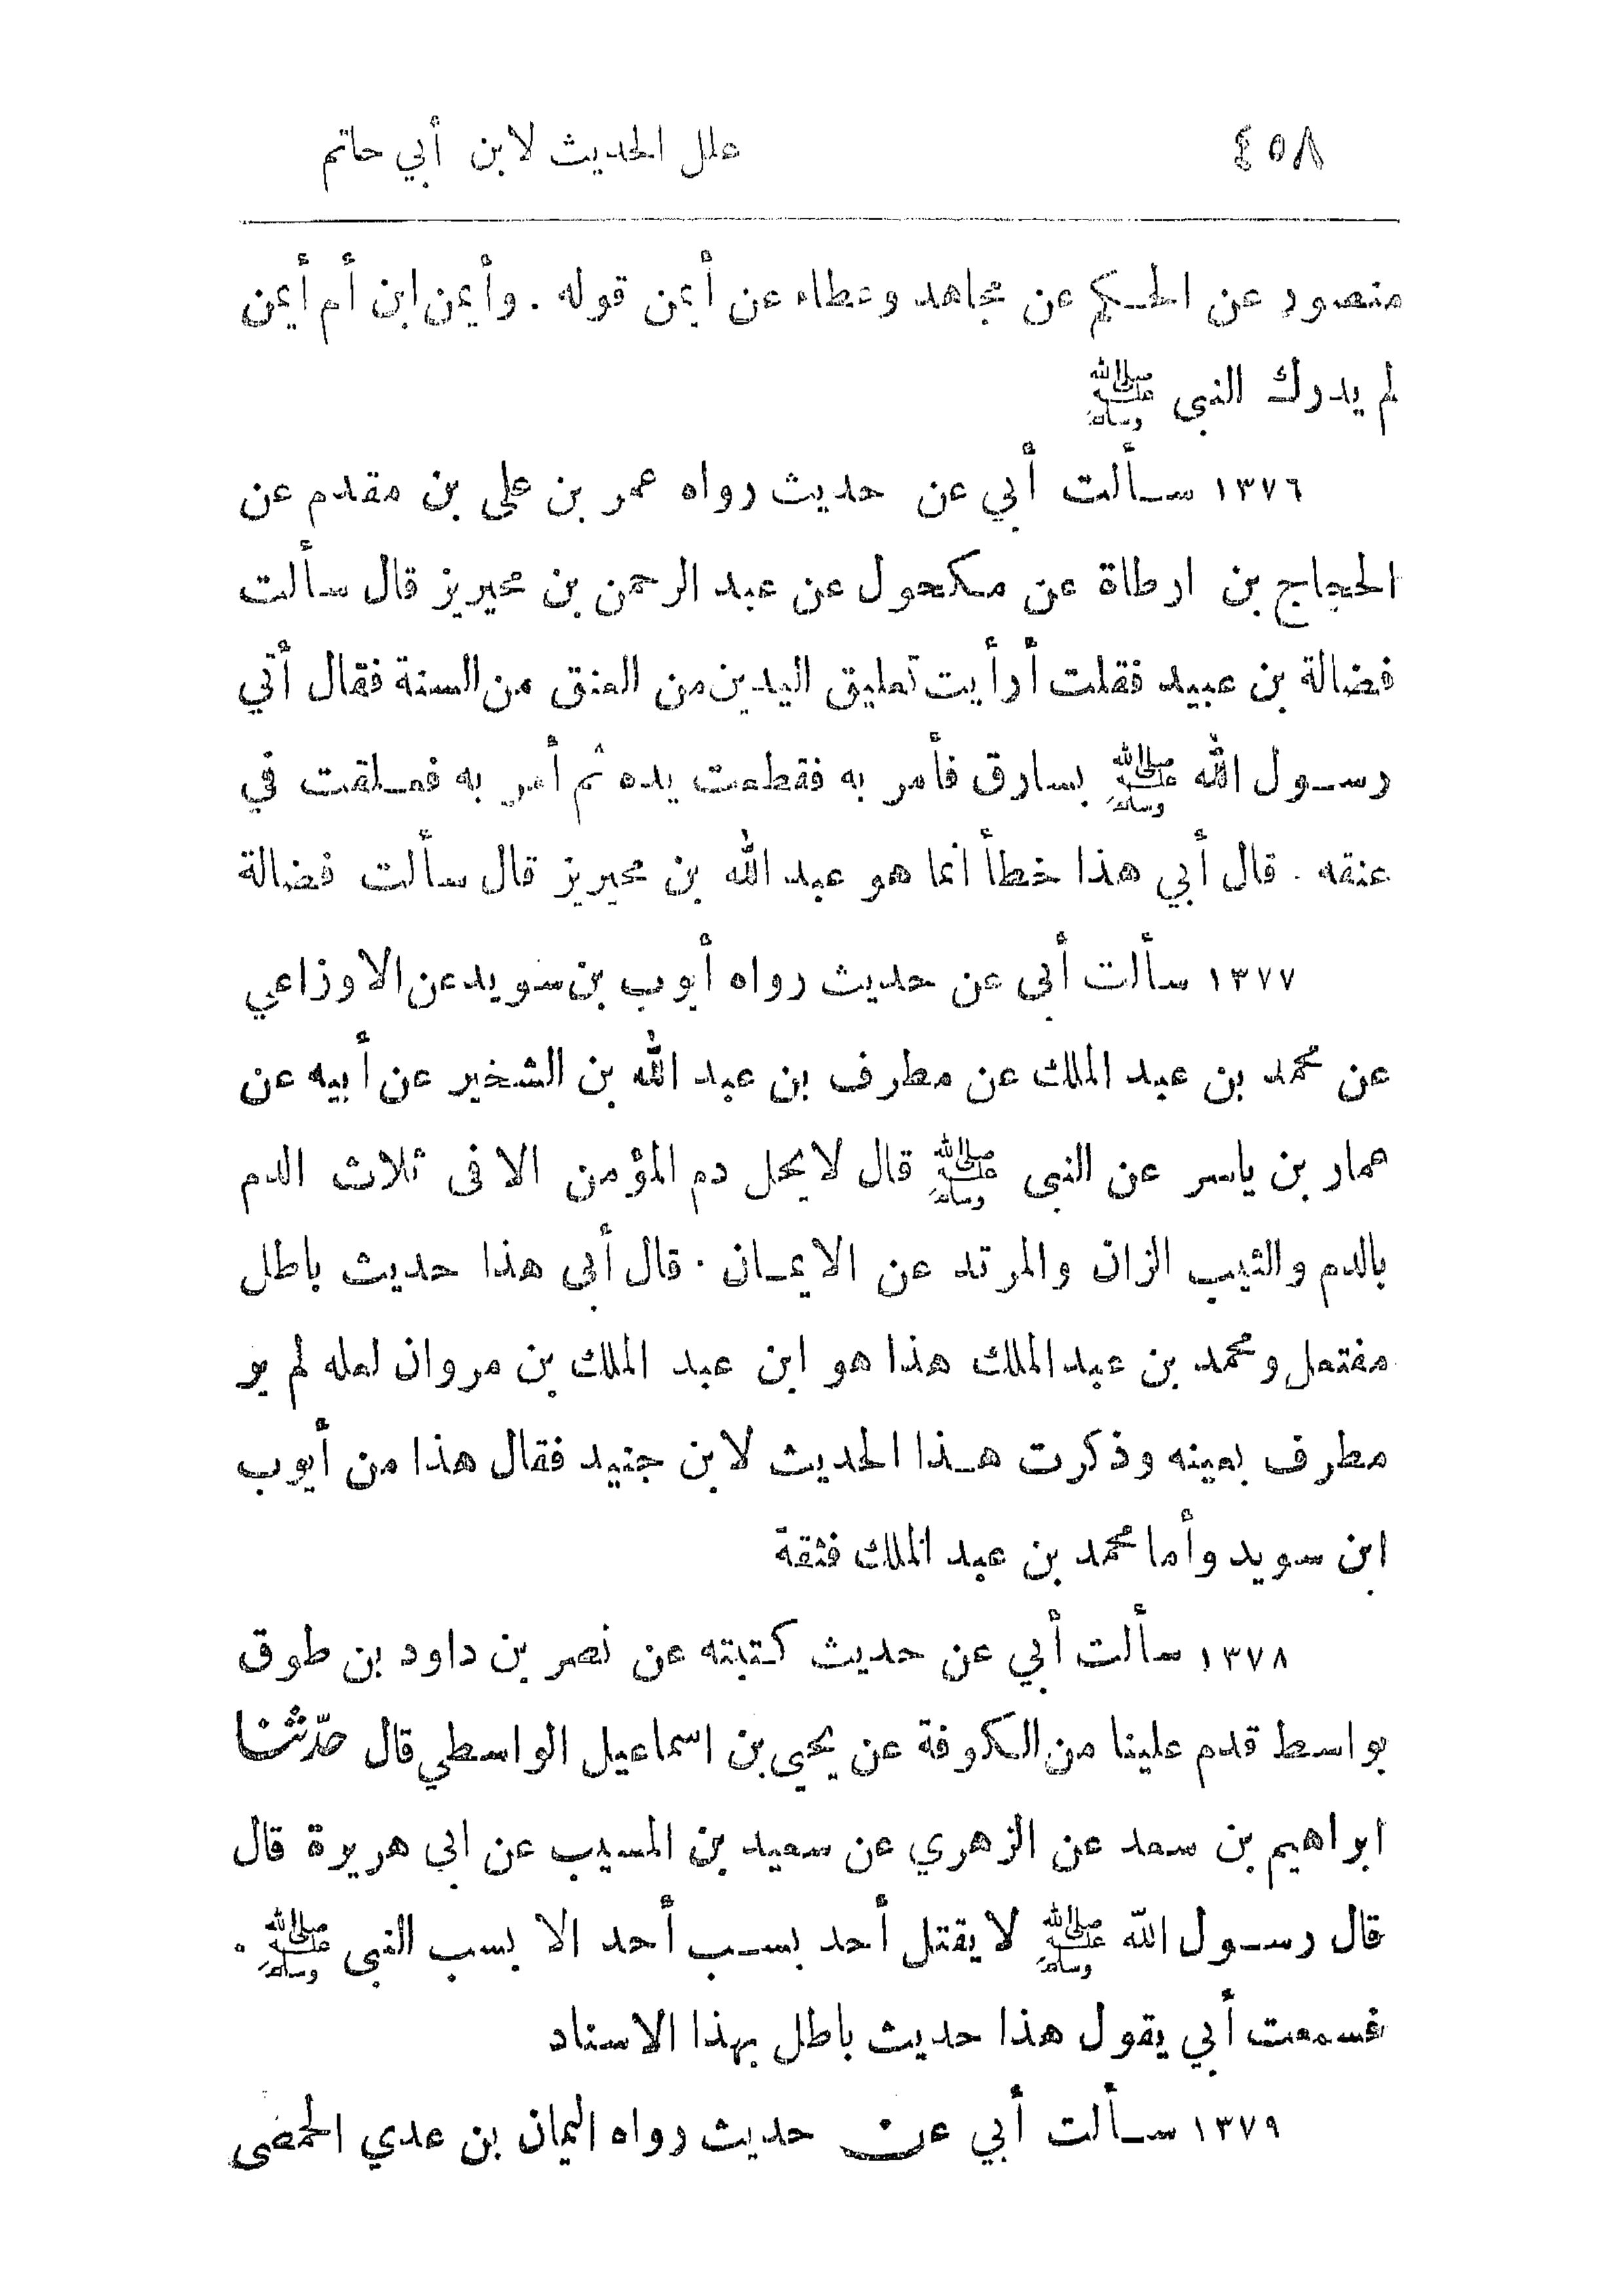 ٤٥٨ علل الحديث لابن أبي حاتم
منصور عن الحكم عن مجاهد وعطاء عن أيمن قوله . وأيمن ابن أم أيمن
لم يدرك النبي ﷺ
١٣٧٦ سألت أبي عن حديث رواه عمر بن علي بن مقدم عن
الحجاج بن ارطاة عن مكحول عن عبد الرحمن بن محيريز قال سألت
فضالة بن عبيد فقلت أرأيت تعليق اليدين من العنق من السنة فقال أتي
رسول الله ﷺ بسارق فأمر به فقطعت يده ثم أمر به فعلقت في
عنقه . قال أبي هذا خطأ انما هو عبد الله بن محيريز قال سألت فضالة
١٣٧٧ سألت أبي عن حديث رواه أيوب بن سويد عن الاوزاعي
عن محمد بن عبد الملك عن مطرف بن عبد الله بن الشخير عن أبيه عن
عمار بن ياسر عن النبي ﷺ قال لا يحل دم المؤمن الا في ثلاث الدم
بالدم والثيب الزان والمرتد عن الايمان . قال أبي هذا حديث باطل
مفتعل ومحمد بن عبد الملك هذا هو ابن عبد الملك بن مروان لعله لم ير
مطرف بعينه وذكرت هذا الحديث لابن جنيد فقال هذا من أيوب
ابن سويد وأما محمد بن عبد الملك فثقة
١٣٧٨ سألت أبي عن حديث كتبته عن نصر بن داود بن طوق
بواسط قدم علينا من الكوفة عن يحيى بن اسماعيل الواسطي قال حدّثنا
ابراهيم بن سعد عن الزهري عن سعيد بن المسيب عن ابي هريرة قال
قال رسول الله ﷺ لا يقتل أحد بسب أحد الا بسب النبي ﷺ .
فسمعت أبي يقول هذا حديث باطل بهذا الاسناد
١٣٧٩ سألت أبي عن حديث رواه اليمان بن عدي الحمصى